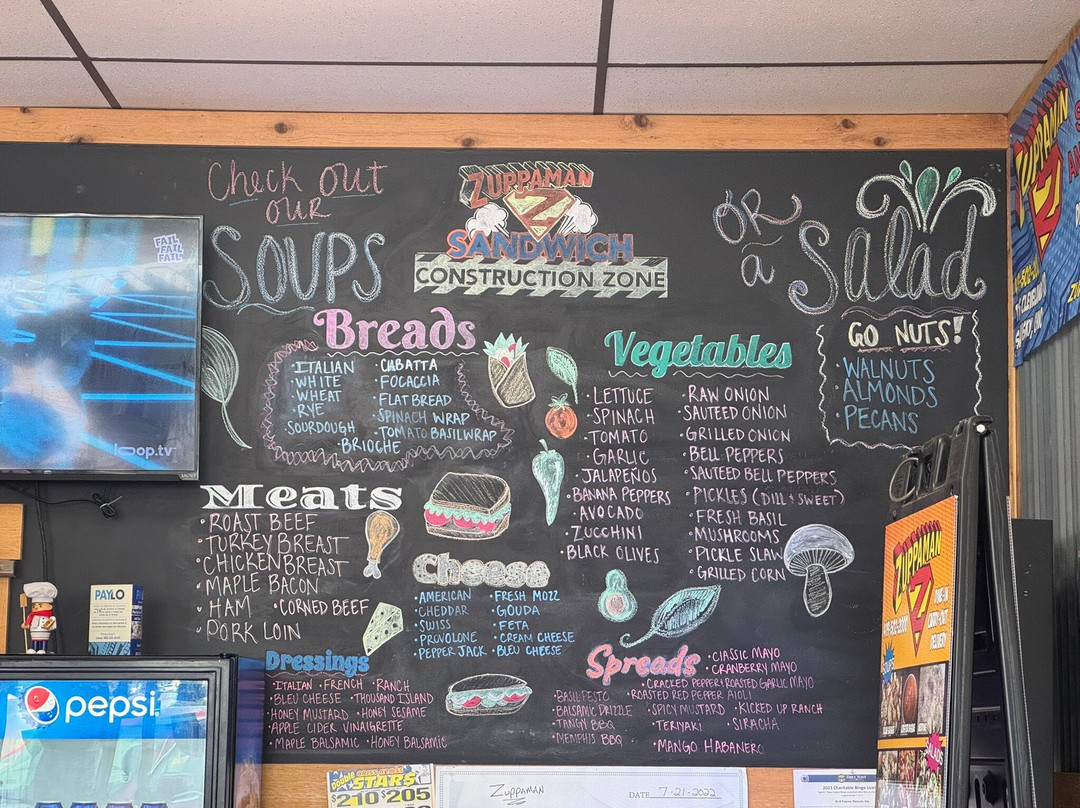 Check out
our
SOUPS
ZUPPAMAN
Z
SANDWICH
CONSTRUCTION ZONE
OR
a
Salad
Breads
ITALIAN
WHITE
WHEAT
RYE
SOURDOUGH
BRIOCHE
CIABATTA
FOCACCIA
FLAT BREAD
SPINACH WRAP
TOMATO BASIL WRAP
Vegetables
· LETTUCE
· SPINACH
· TOMATO
· GARLIC
· JALAPEÑOS
· BANANA PEPPERS
· AVOCADO
· ZUCCHINI
· BLACK OLIVES
· RAW ONION
· SAUTEED ONION
· GRILLED ONION
· BELL PEPPERS
· SAUTEED BELL PEPPERS
· PICKLES (DILL & SWEET)
· FRESH BASIL
· MUSHROOMS
· PICKLE SLAW
· GRILLED CORN
GO NUTS!
· WALNUTS
· ALMONDS
· PECANS
Meats
· ROAST BEEF
· TURKEY BREAST
· CHICKEN BREAST
· MAPLE BACON
· HAM · CORNED BEEF
· PORK LOIN
Cheese
· AMERICAN
· CHEDDAR
· SWISS
· PROVOLONE
· PEPPER JACK
· FRESH MOZZ
· GOUDA
· FETA
· CREAM CHEESE
· BLEU CHEESE
Dressings
· ITALIAN · FRENCH · RANCH
· BLEU CHEESE · THOUSAND ISLAND
· HONEY MUSTARD · HONEY SESAME
· APPLE CIDER VINAIGRETTE
· MAPLE BALSAMIC · HONEY BALSAMIC
Spreads
· CLASSIC MAYO
· CRANBERRY MAYO
· CRACKED PEPPER & ROASTED GARLIC MAYO
· BASIL PESTO · ROASTED RED PEPPER AIOLI
· BALSAMIC DRIZZLE · SPICY MUSTARD · KICKED UP RANCH
· TANGY BBQ · TERIYAKI · SIRACHA
· MEMPHIS BBQ · MANGO HABANERO
FAIL
FAIL
FAIL
loop.tv
PAYLO
pepsi
Double
STARS
$210 $205
Zuppaman
DATE 7-21-2022
2023 Charitable Bingo
ZUPPAMAN
Z
ZUPPAMAN
Z
DELIVERY
SOUPS
SALADS